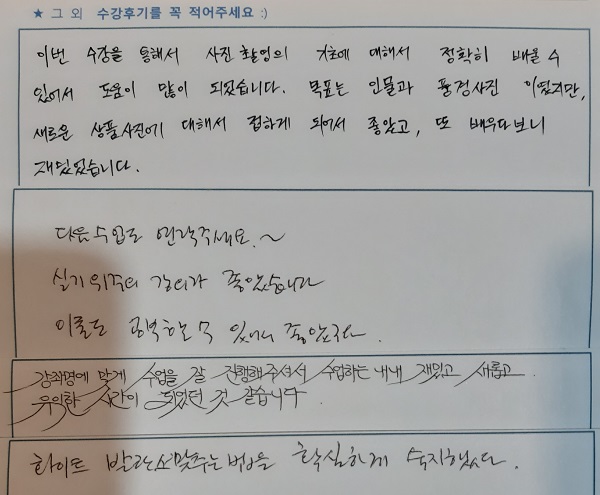 ★ 그 외 수강후기를 꼭 적어주세요 :)
이번 수강을 통해서 사진 촬영의 기초에 대해서 정확히 배울 수
있어서 도움이 많이 되었습니다. 목표는 인물과 풍경사진 이였지만,
새로운 상품사진에 대해서 접하게 되어서 좋았고, 또 배우다보니
재밌었습니다.
다음 수업도 연락주세요.~
실기 위주의 강의가 좋았습니다
이론도 공부할 수 있어서 좋았고요.
강좌명에 맞게 수업을 잘 진행해주셔서 수업하는 내내 재밌고 새롭고
유익한 시간이 되었던 것 같습니다
화이트 발란스 맞추는 법을 확실하게 숙지했다.